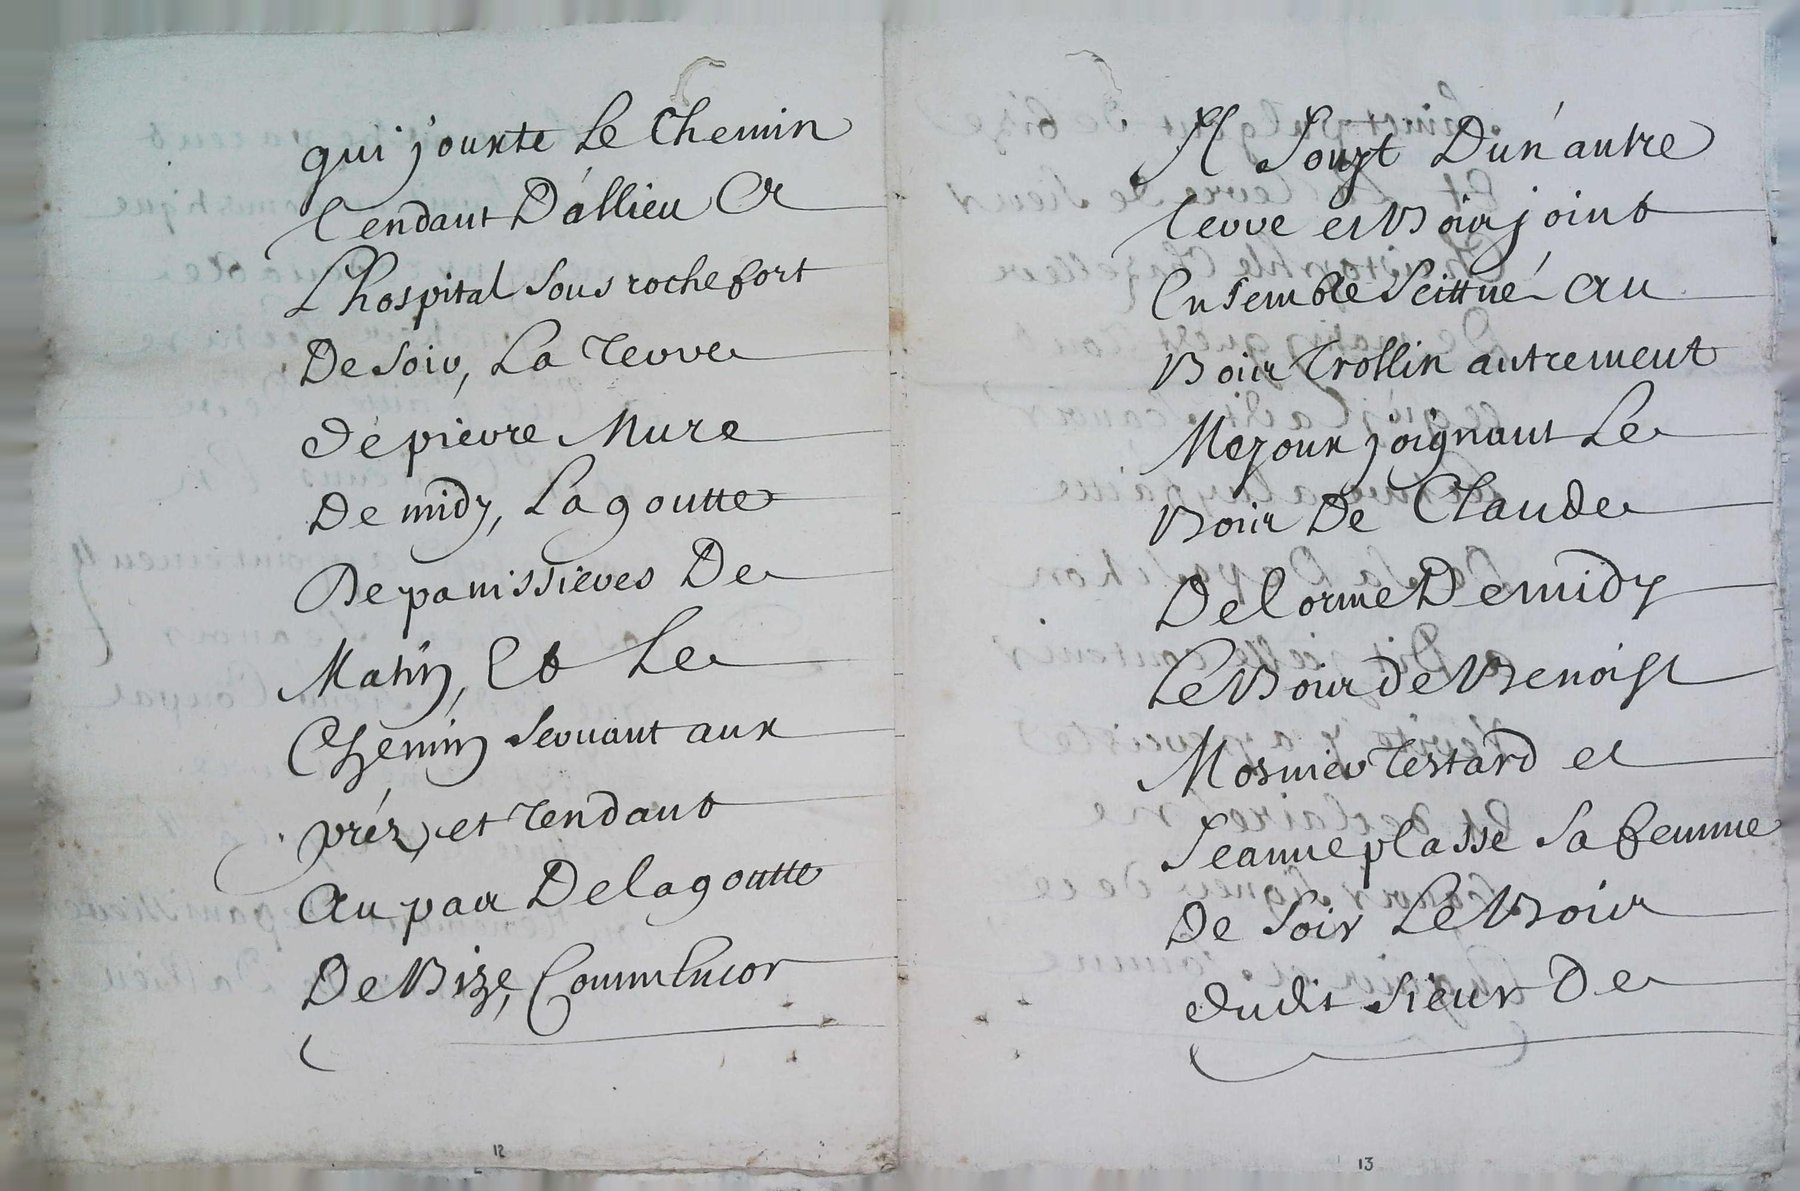 qui jouxte Le Chemin
Tendant D'allieu A
L'hospital Sous rochefort
De soir, La Terre
de pierre Mure
De midy, La goutte
De panissieres De
Matin, Et Le
Chemin servant aux
préz, et tendant
au pax De la goutte
De Bize, Comm Encor
12
A Soupt D'un autre
Terre et Bois joint
Ensemble Scittué au
Bois Trollin autrement
Mezoux joignant Le
Bois De Claude
De l'orme De midy
Le Bois de Benoist
Mosnier Testard et
Jeanne plasse Sa femme
De Soir Le Bois
dudit Sieur De
13